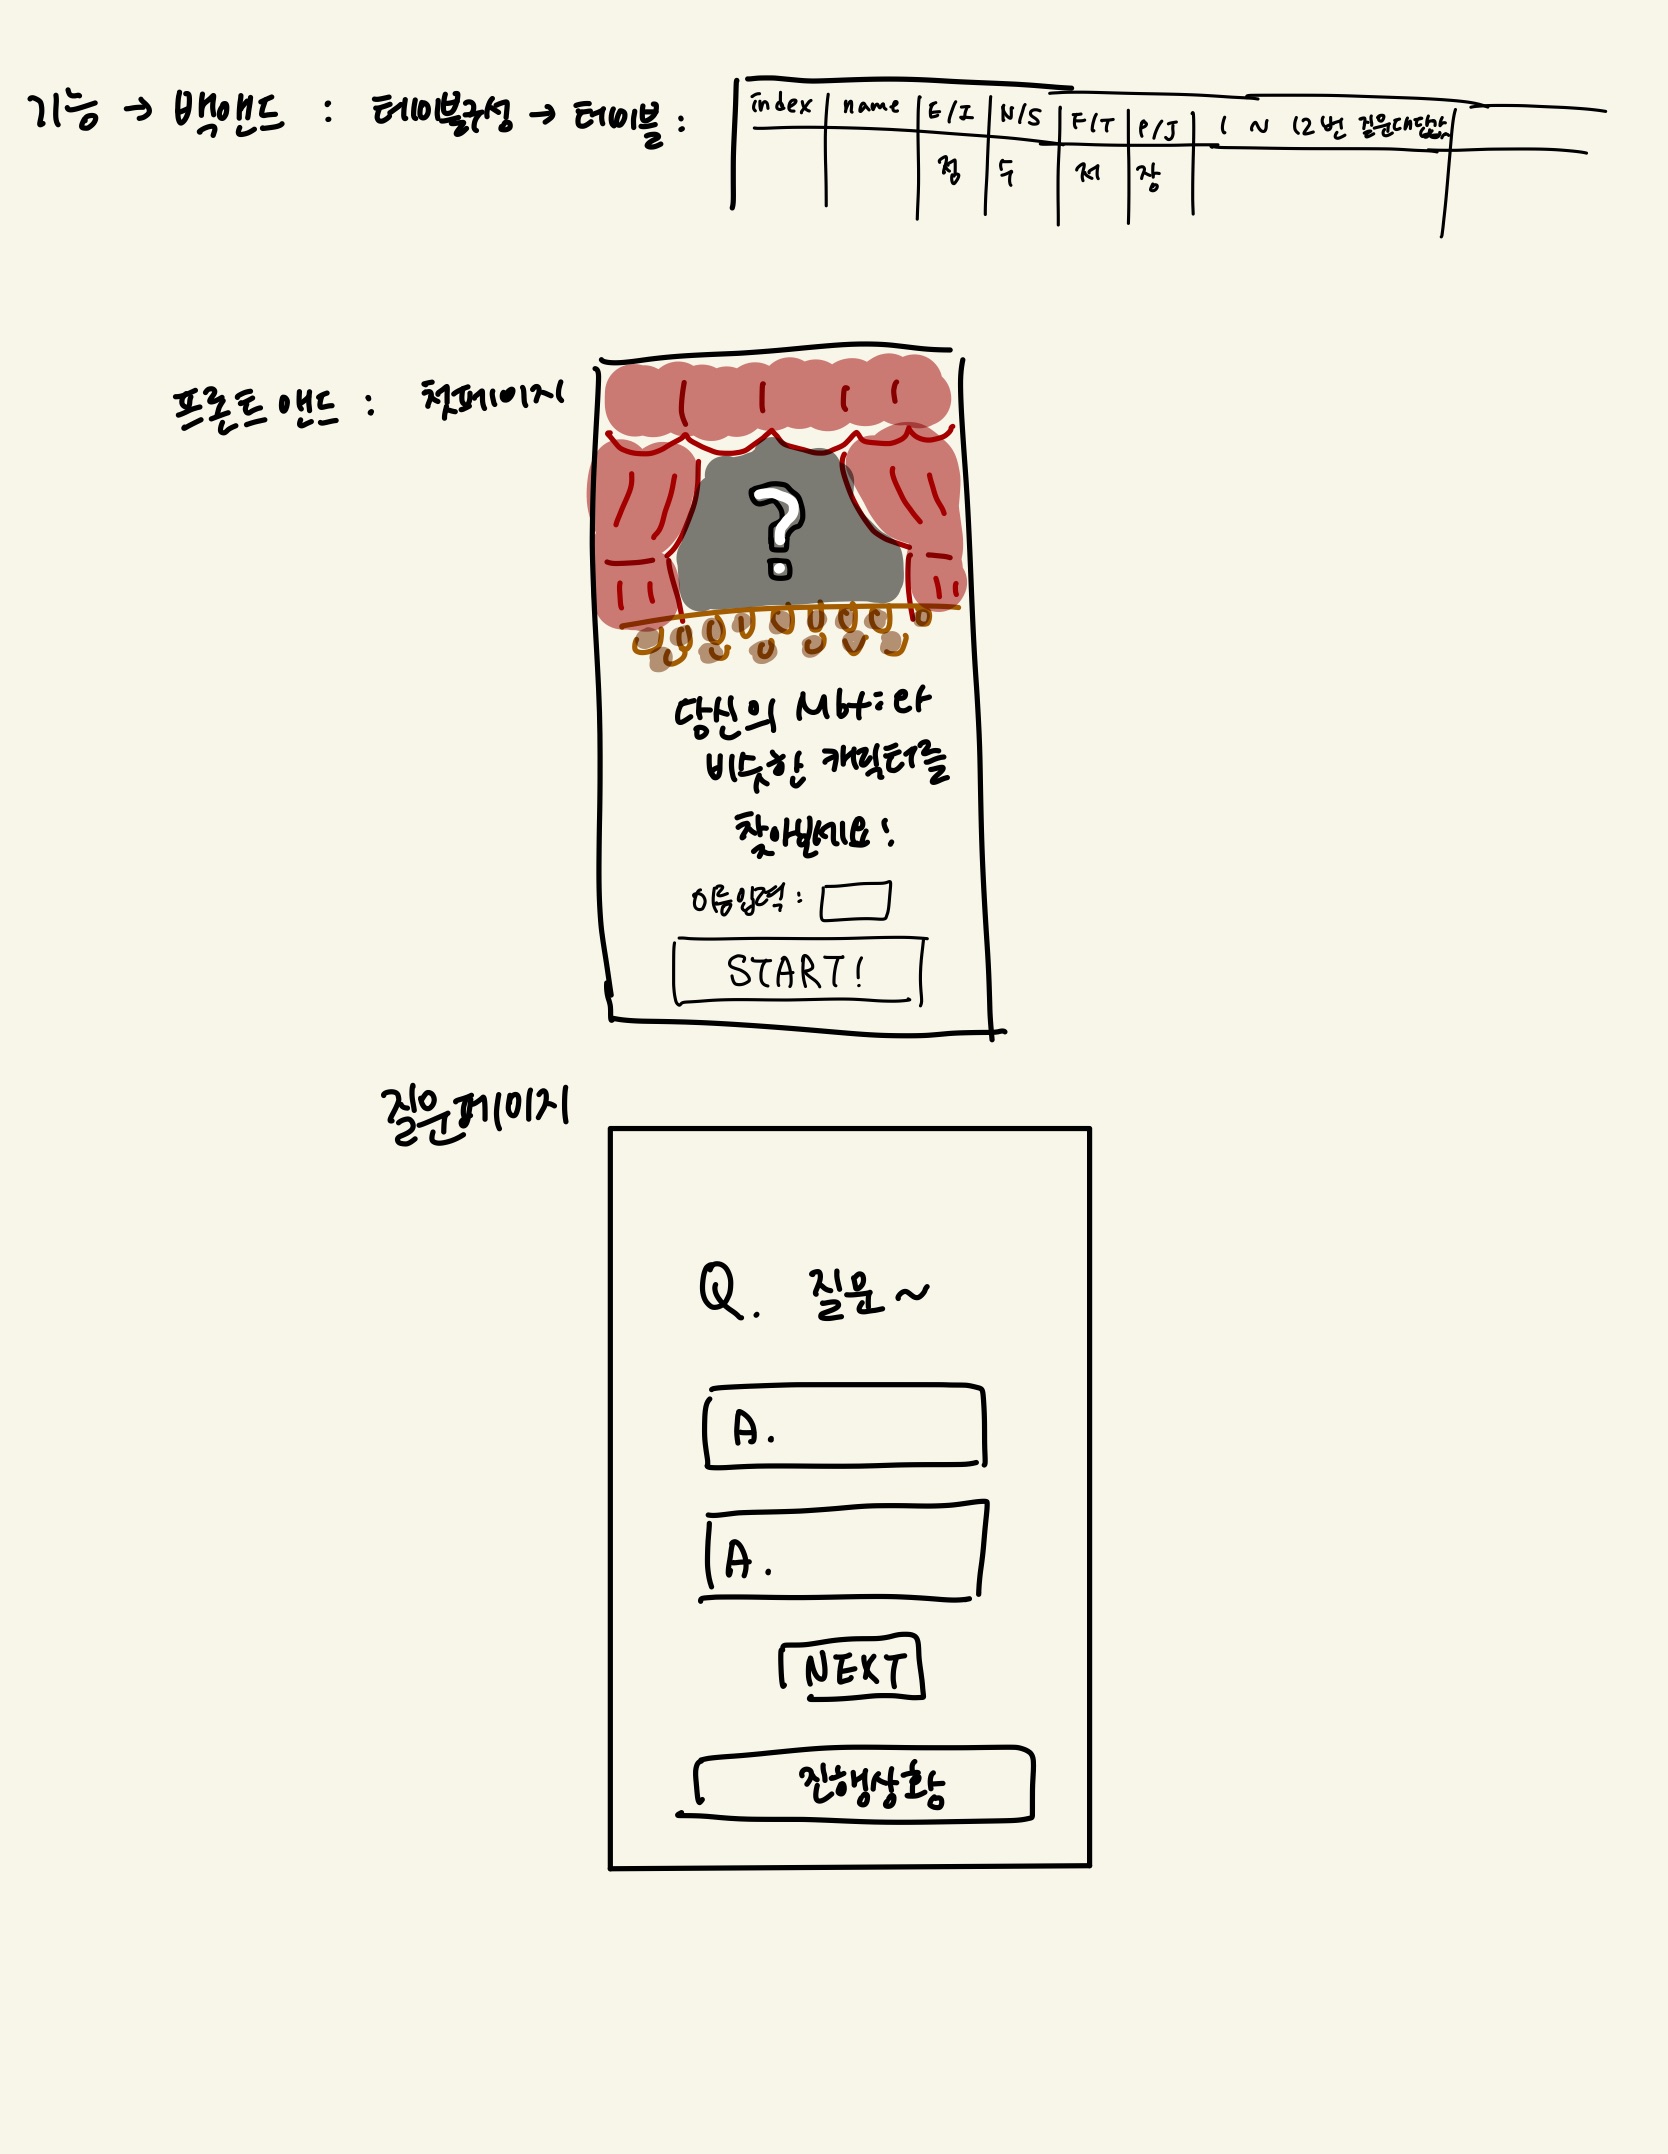 기능 → 백앤드 : 테이블구성 → 테이블 :
index name E/I N/S F/T P/J 1 ~ 12번 질문대답
점 수 저 장
프론트 앤드 : 첫페이지
?
당신의 Mbti랑
비슷한 캐릭터를
찾아보세요!
이름입력 :
START!
질문페이지
Q. 질문~
A.
A.
NEXT
진행상황